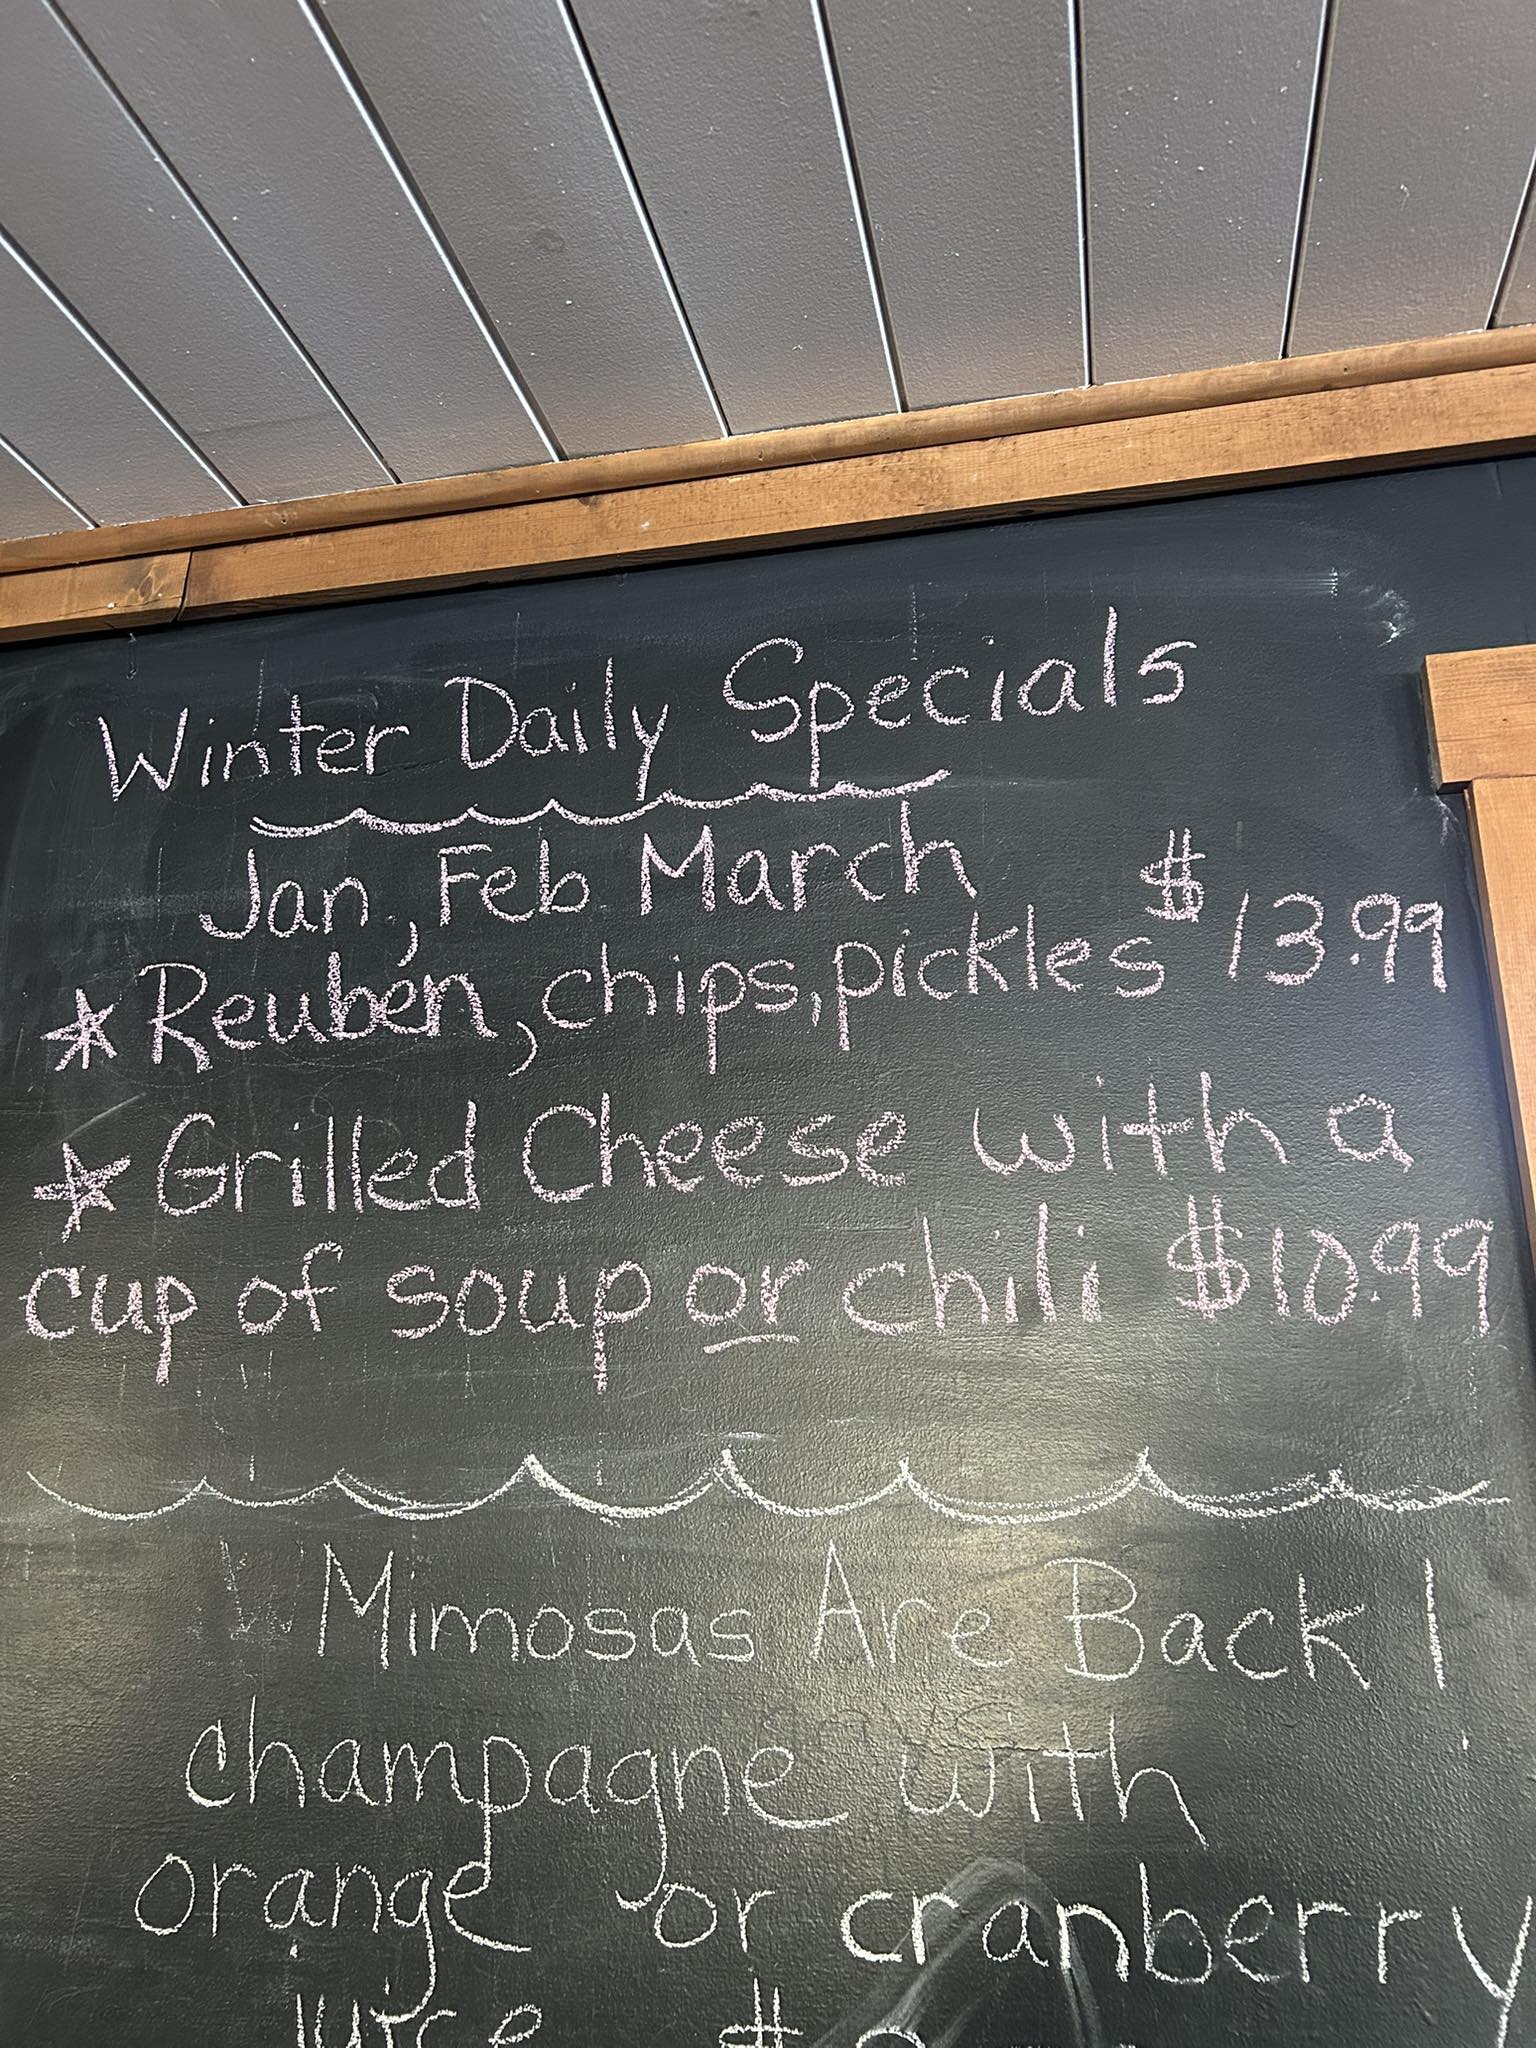 Winter Daily Specials
Jan, Feb. March
* Reuben, chips, pickles $13.99
* Grilled Cheese with a
cup of soup or chili $10.99
Mimosas Are Back!
champagne with
orange or cranberry
juice $